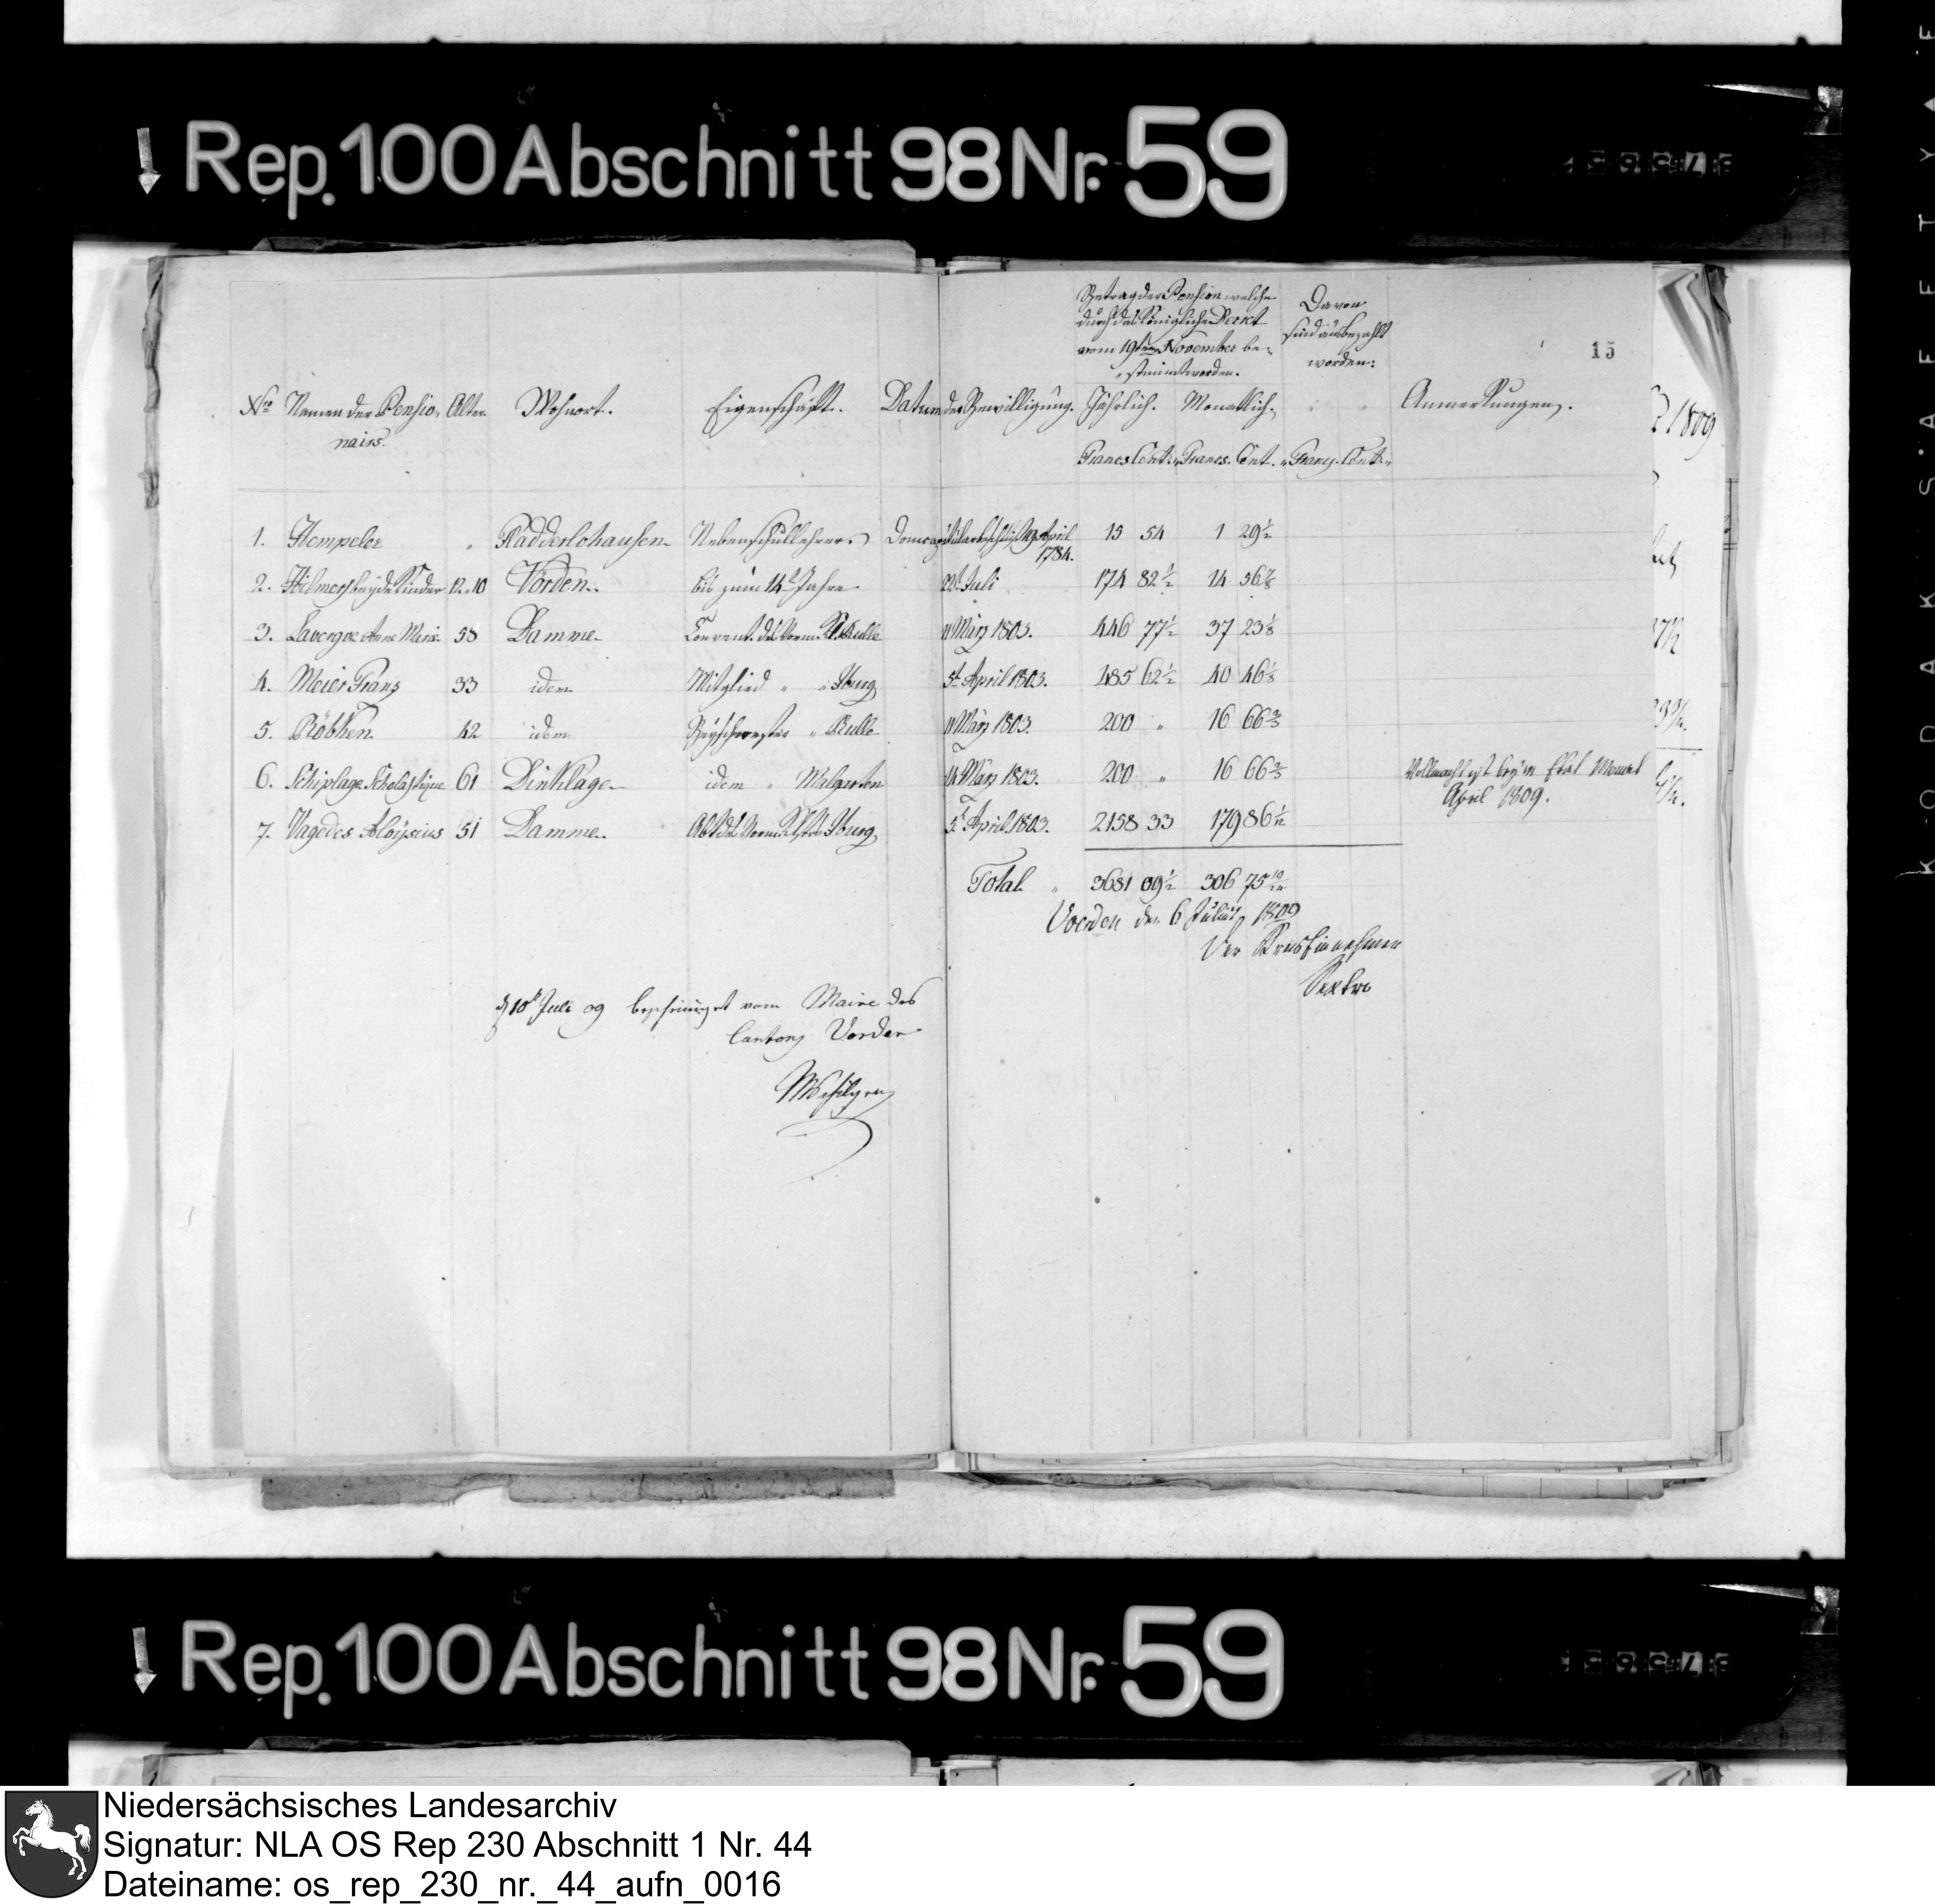 Rep. 100 Abschnitt 98 Nr. 59
15
Betrag der Pension welche
durch das Königliche Decret
vom 19ten November be-
stimmt worden.
Davon
sind ausbezahlt
worden:
Nro Namen der Pensio- Alter. Wohnort. Eigenschaft. Datum der Bewilligung. Jährlich. Monatlich. Anmerkungen.
nairs.
Francs Cent. Francs. Cent. Francs. Cent.
1809
1. Hempeler " Radderlohausen Nebenschullehrer. April 15 54 1 29 1/2
1784.
2. Hilmers beyde Kinder 12. 10 Vörden. bis zum 14t Jahre Juli 174 82 1/2 14 56 7/8
3. Lavergne Anne Marie 58 Damme. Convent. des vorm. Kl. Rulle 11 März 1803. 446 77 1/2 37 23 1/8
4. Meier Franz 33 idem Mitglied " " Iburg 5t April 1803. 485 62 1/2 40 46 1/8
5. Röbken. 42 idem Beyschwester " Rulle 11 März 1803. 200 " 16 66 2/3
6. Schiplage Scholastique 61 Dinklage idem " Malgarten 14 März 1803. 200 " 16 66 2/3 Vollmacht ist beym Etat Monat
April 1809.
7. Vagedes Aloysius 51 Damme. Abt des vorm. Klosters Iburg 5t April 1803. 2158 33 179 86 1/12
Total " 3681 09 1/2 306 75 10/12
Voerden den 6 Julius 1809
Der Kreis Einnehmer
Sextro
d 10t Juli 09 bescheiniget vom Maire des
Cantons Vorden
Rep. 100 Abschnitt 98 Nr. 59
KODAK SAFETY
Niedersächsisches Landesarchiv
Signatur: NLA OS Rep 230 Abschnitt 1 Nr. 44
Dateiname: os_rep_230_nr._44_aufn_0016